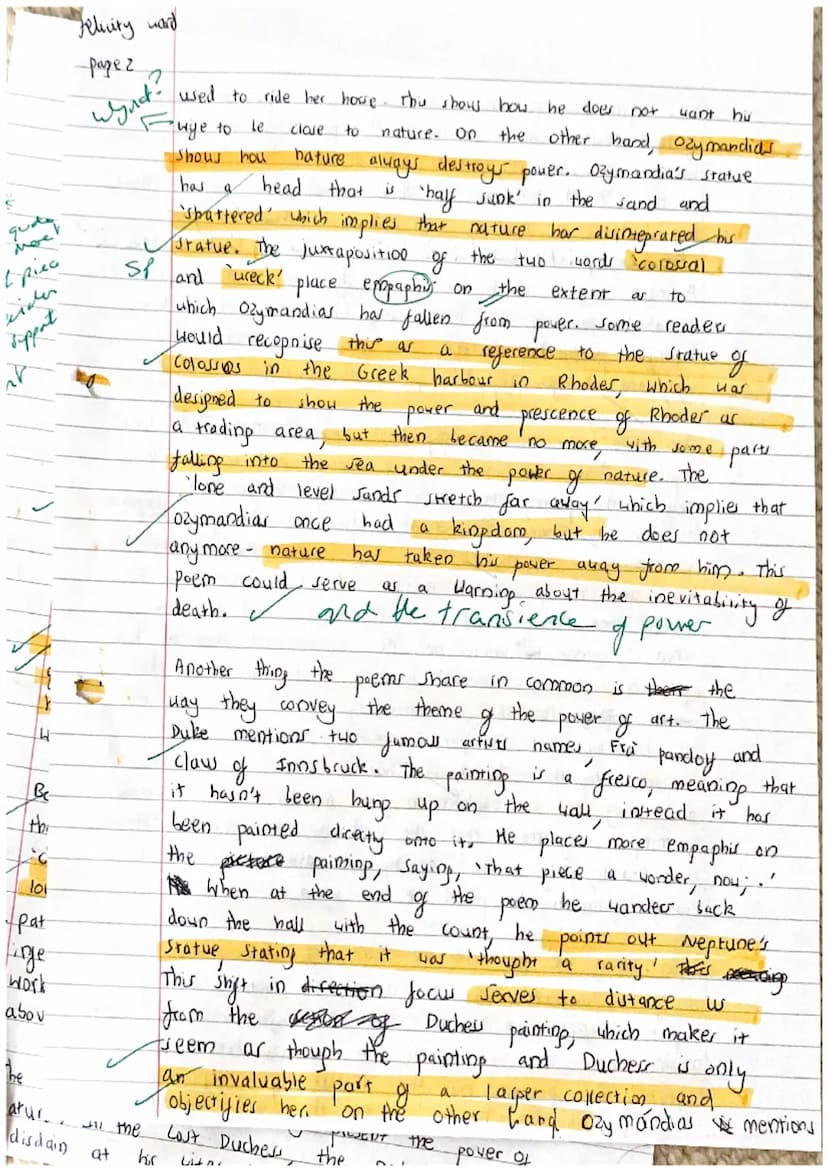 felicity ward
page 2
used to ride her horse. This shows how he does not want his
wife to be close to nature. On the other hand, Ozymandias
shows how nature always destroys power. Ozymandia's statue
has a head that is 'half sunk' in the sand and
'shattered' which implies that nature has disintegrated his
statue. The juxtaposition of the two words 'colossal
Sp
and 'wreck' place empaphis on the extent as to
which Ozymandias has fallen from power. Some readers
would recognise this as a reference to the statue of
Colossos in the Greek harbour in Rhodes, which was
designed to show the power and prescence of Rhodes as
a trading area, but then became no more, with some parts
falling into the sea under the power of nature. The
'lone and level sands stretch far away' which implies that
Ozymandias once had a kingdom, but he does not
anymore - nature has taken his power away from him. This
poem could serve as a warning about the inevitability of
death.
and the transience of power
Another thing the poems share in common is the
way they convey the theme of the power of art. The
Duke mentions two famous artists names, Fra pandoy and
Claws of Innsbruck. The painting is a fresco, meaning that
it hasn't been hung up on the wall, instead it has
been painted directly onto it. He places more empaphis on
the picture painting, saying, 'that piece a wonder, now;.'
When at the end of the poem he wanders back
down the hall with the count, he points out Neptune's
statue, stating that it was 'thought a rarity.' This
This shift in direction focus serves to distance us
from the Duchess painting, which makes it
seem as though the painting and Duchess is only
an invaluable part of a larger collection and
objectifies her. On the other hand Ozymandias mentions
quote
support
Be
th
pat
inge
work
abov
he
the Last Duchess, the
the power of
disdain at his